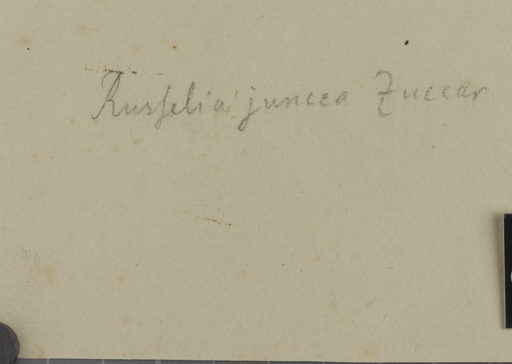 Rusſelia juncea Zuccar